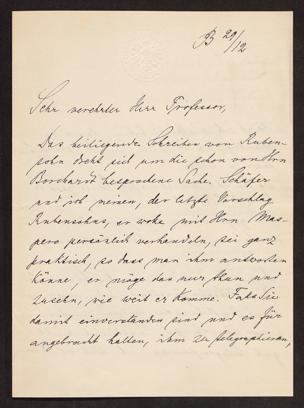 B 29/12
Sehr verehrter Herr Professor,
Das beiliegende Schreiben von Ruben-
sohn dreht sich um die schon von Hrn
Borchardt besprochene Sache. Schäfer
und ich meinen, der letzte Vorschlag
Rubensohns, er wolle mit Hrn. Mas-
pero persönlich verhandeln, sei ganz
praktisch, so dass man ihm antworten
könne, er möge das nur thun und
zusehn, wie weit er komme. Falls Sie
damit einverstanden sind und es für
angebracht halten, ihm zu telegraphieren,